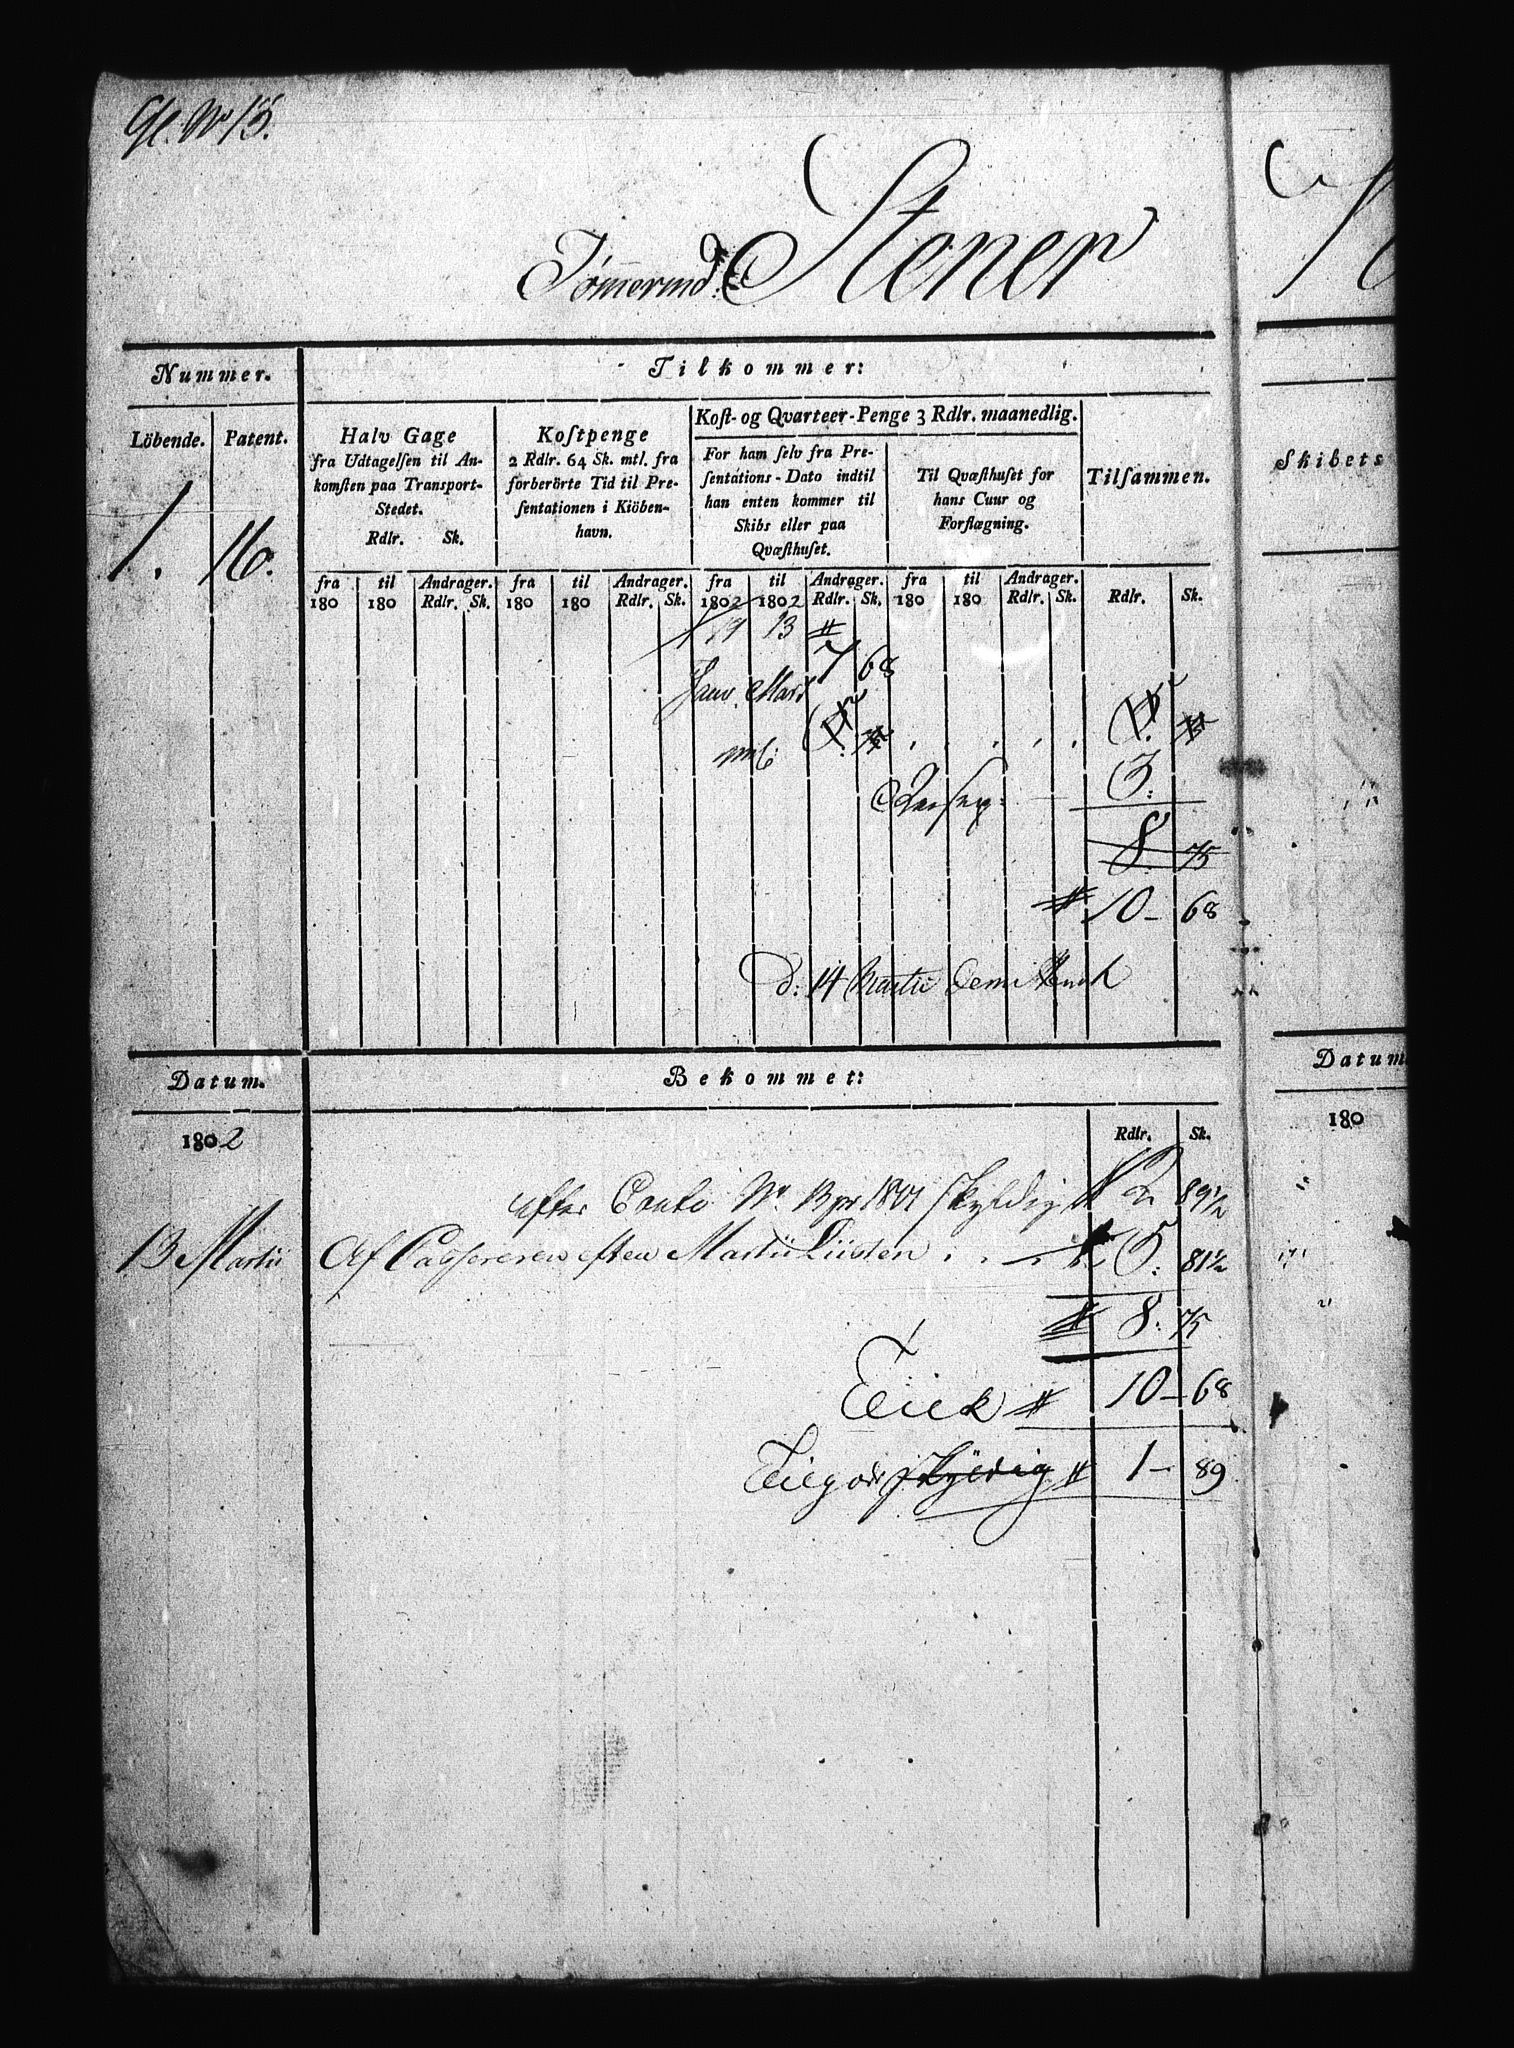 Gl. No 13.
Tömermd: Stener
Nummer.
Tilkommer:
Löbende. Patent.
Halv Gage
fra Udtagelsen til An-
komsten paa Transport-
Stedet.
Rdlr. Sk.
Kostpenge
2 Rdlr. 64 Sk. mtl. fra
forberörte Tid til Pre-
sentationen i Kiöben-
havn.
Kost- og Qvarteer-Penge 3 Rdlr. maanedlig.
For ham selv fra Pre-
sentations-Dato indtil
han enten kommer til
Skibs eller paa
Qvæsthuset.
Til Qvæsthuset for
hans Cuur og
Forflægning.
Tilsammen.
Skibets
1. 16.
fra til Andrager. fra til Andrager. fra til Andrager. fra til Andrager.
180 180 Rdlr. Sk. 180 180 Rdlr. Sk. 1802 1802 Rdlr. Sk. 180 180 Rdlr. Sk. Rdlr. Sk.
19 13
7 68
Janv. Mart
3:
8 75
10 - 68
d: 14 Martii
Datum. Bekommet: Datum
1802 Rdlr. Sk. 180
efter Conto No 13 pr 1801 skyldig 2 89½
13 Martii Af Cassereren efter Martii Listen . . 5: 81½
8: 75
10 - 68
skyldig 1 - 89